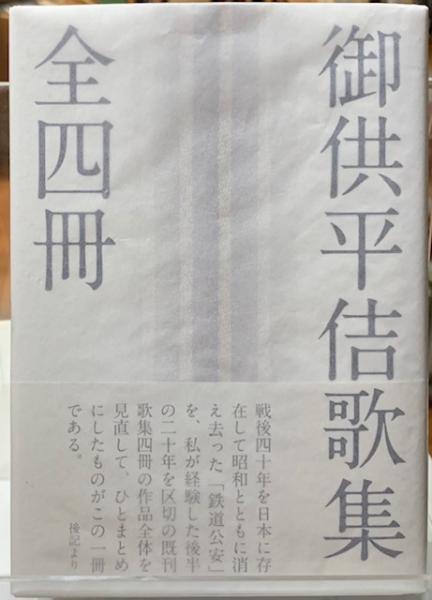 御供平佶歌集
全四冊
戦後四十年を日本に存
在して昭和とともに消
え去った「鉄道公安」
を、私が経験した後半
の二十年を区切の既刊
歌集四冊の作品全体を
見直して、ひとまとめ
にしたものがこの一冊
である。
後記より